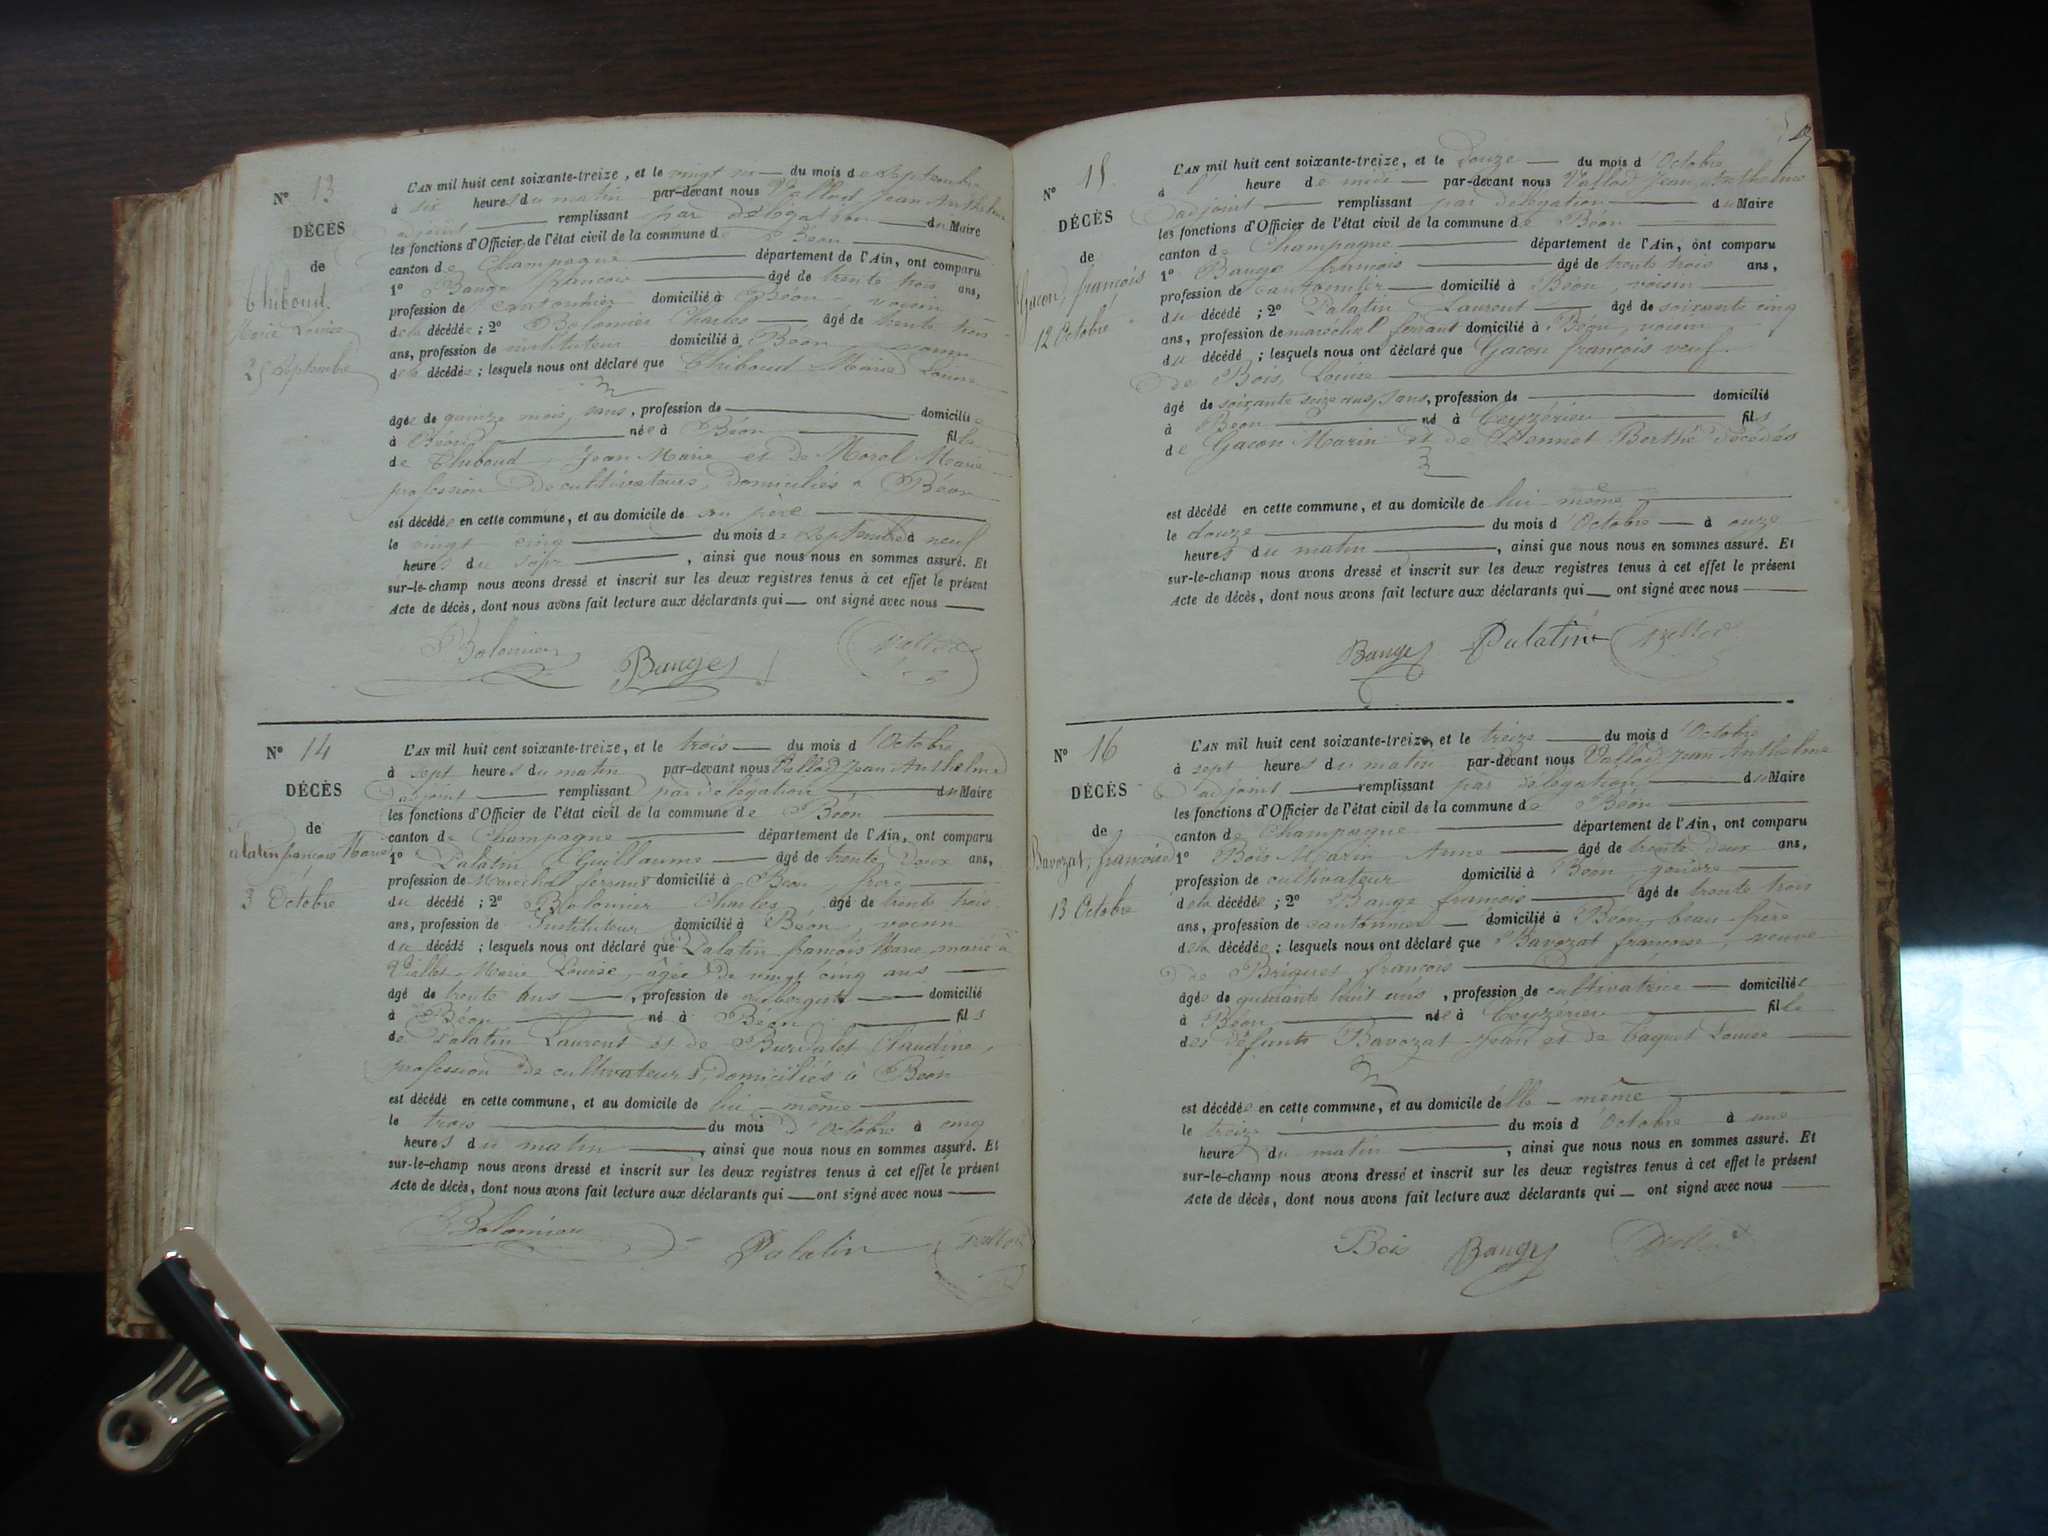 N° 13
DÉCÈS
de
Thiboud
Marie Louise
25 Septembre
L'AN mil huit cent soixante-treize, et le vingt six — du mois de Septembre
à six heures du matin par-devant nous Vallod Jean Anthelme
adjoint — remplissant par délégation — du Maire
les fonctions d'Officier de l'état civil de la commune de Béon —
canton de Champagne — département de l'Ain, ont comparu
1° Bange françois — âgé de trente trois ans,
profession de cantonnier domicilié à Béon, voisin
de la décédée ; 2° Bolomier Charles — âgé de trente trois
ans, profession de instituteur domicilié à Béon, voisin
de la décédée ; lesquels nous ont déclaré que Thiboud Marie Louise
âgée de quinze mois, sans, profession de — domiciliée
à Béon — née à Béon — fille
de Thiboud Jean Marie et de Morel Marie
profession de cultivateurs, domiciliés à Béon
est décédée en cette commune, et au domicile de son père —
le vingt cinq — du mois de Septembre à neuf
heures du soir —, ainsi que nous nous en sommes assuré. Et
sur-le-champ nous avons dressé et inscrit sur les deux registres tenus à cet effet le présent
Acte de décès, dont nous avons fait lecture aux déclarants qui — ont signé avec nous —
Bolomier Banges Vallod
N° 14
DÉCÈS
de
Palatin françois Marie
3 Octobre
L'AN mil huit cent soixante-treize, et le trois — du mois d'Octobre
à sept heures du matin par-devant nous Vallod Jean Anthelme
adjoint — remplissant par délégation — du Maire
les fonctions d'Officier de l'état civil de la commune de Béon —
canton de Champagne — département de l'Ain, ont comparu
1° Palatin Guillaume — âgé de trente deux ans,
profession de Maréchal ferrant domicilié à Béon, frère —
du décédé ; 2° Bolomier Charles âgé de trente trois
ans, profession de Instituteur domicilié à Béon, voisin
du décédé ; lesquels nous ont déclaré que Palatin françois Marie, marié à
Viallet Marie Louise, âgée de vingt cinq ans —
âgé de trente ans —, profession de aubergiste — domicilié
à Béon — né à Béon — fils
de Palatin Laurent et de Burdalet Claudine,
profession de cultivateurs, domiciliés à Béon
est décédé en cette commune, et au domicile de lui-même —
le trois — du mois d'Octobre à cinq
heures du matin —, ainsi que nous nous en sommes assuré. Et
sur-le-champ nous avons dressé et inscrit sur les deux registres tenus à cet effet le présent
Acte de décès, dont nous avons fait lecture aux déclarants qui — ont signé avec nous —
Bolomier Palatin Vallod
N° 15
DÉCÈS
de
Gacon, françois
12 Octobre
L'AN mil huit cent soixante-treize, et le douze — du mois d'Octobre
à heure de midi — par-devant nous Vallod Jean Anthelme
adjoint — remplissant par délégation — du Maire
les fonctions d'Officier de l'état civil de la commune de Béon —
canton de Champagne — département de l'Ain, ont comparu
1° Bange françois — âgé de trente trois ans,
profession de cantonnier — domicilié à Béon, voisin —
du décédé ; 2° Palatin Laurent — âgé de soixante cinq
ans, profession de maréchal ferrant domicilié à Béon, voisin
du décédé ; lesquels nous ont déclaré que Gacon françois veuf
de Bois Louise —
âgé de soixante seize ans, sans, profession de — domicilié
à Béon — né à Ceyzérieu — fils
de Gacon Marin et de Berthe décédés
est décédé en cette commune, et au domicile de lui-même —
le douze — du mois d'Octobre — à onze
heures du matin —, ainsi que nous nous en sommes assuré. Et
sur-le-champ nous avons dressé et inscrit sur les deux registres tenus à cet effet le présent
Acte de décès, dont nous avons fait lecture aux déclarants qui — ont signé avec nous —
Banges Palatin Vallod
N° 16
DÉCÈS
de
Bavozat, françoise
13 Octobre
L'AN mil huit cent soixante-treize, et le treize — du mois d'Octobre
à sept heures du matin par-devant nous Vallod Jean Anthelme
adjoint — remplissant par délégation — du Maire
les fonctions d'Officier de l'état civil de la commune de Béon —
canton de Champagne — département de l'Ain, ont comparu
1° Bois Marin Anne — âgé de trente deux ans,
profession de cultivateur domicilié à Béon, gendre —
de la décédée ; 2° Bange françois — âgé de trente trois
ans, profession de cantonnier — domicilié à Béon, beau-frère
de la décédée ; lesquels nous ont déclaré que Bavozat françoise, veuve
de Briques françois —
âgée de quarante huit ans, profession de cultivatrice — domiciliée
à Béon — née à Ceyzérieu — fille
des défunts Bavozat Jean et de Caquet Louise —
est décédée en cette commune, et au domicile de elle-même —
le treize — du mois d'Octobre à une
heure du matin —, ainsi que nous nous en sommes assuré. Et
sur-le-champ nous avons dressé et inscrit sur les deux registres tenus à cet effet le présent
Acte de décès, dont nous avons fait lecture aux déclarants qui — ont signé avec nous —
Bois Banges Vallod